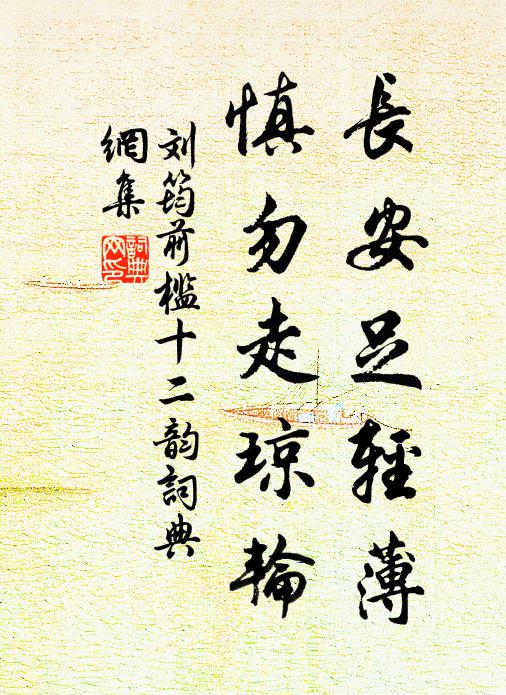 長安足輕薄
慎勿走琼輪
刘筠前檻十二韵詞典
網集
詞典网印